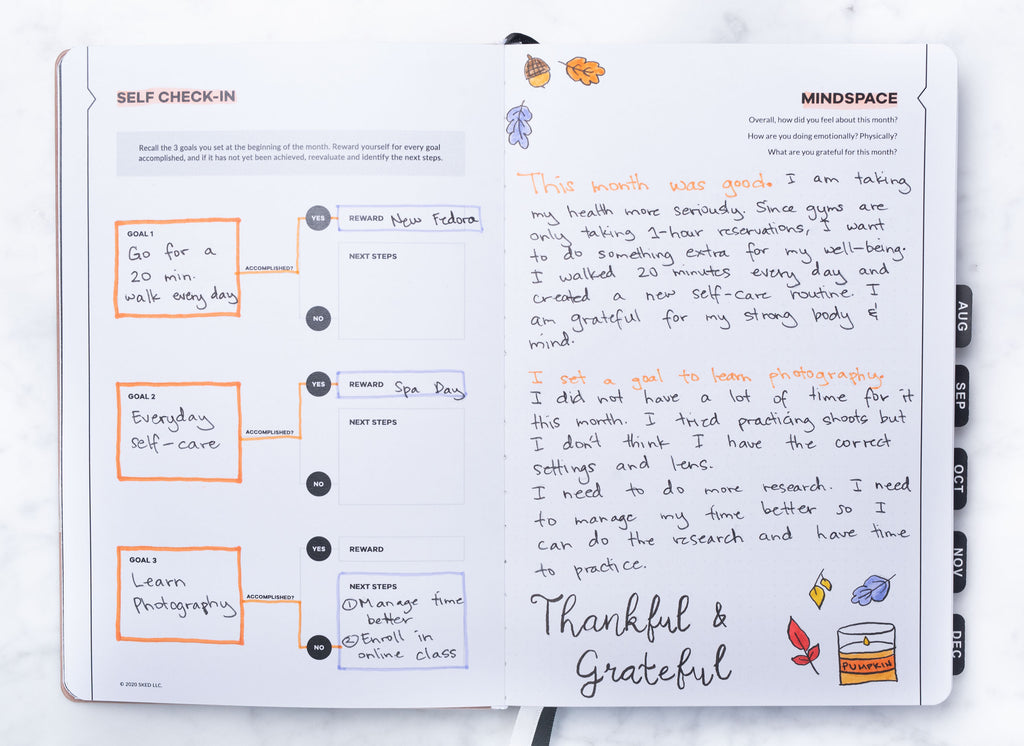 SELF CHECK-IN
Recall the 3 goals you set at the beginning of the month. Reward yourself for every goal
accomplished, and if it has not yet been achieved, reevaluate and identify the next steps.
GOAL 1
Go for a
20 min.
walk every day
ACCOMPLISHED?
YES
REWARD New Fedora
NEXT STEPS
NO
GOAL 2
Everyday
self-care
ACCOMPLISHED?
YES
REWARD Spa Day
NEXT STEPS
NO
GOAL 3
Learn
Photography
ACCOMPLISHED?
YES
REWARD
NEXT STEPS
① Manage time
better
② Enroll in
online class
NO
© 2020 SKED LLC.
MINDSPACE
Overall, how did you feel about this month?
How are you doing emotionally? Physically?
What are you grateful for this month?
This month was good. I am taking
my health more seriously. Since gyms are
only taking 1-hour reservations, I want
to do something extra for my well-being.
I walked 20 minutes every day and
created a new self-care routine. I
am grateful for my strong body &
mind.
I set a goal to learn photography.
I did not have a lot of time for it
this month. I tried practicing shoots but
I don't think I have the correct
settings and lens.
I need to do more research. I need
to manage my time better so I
can do the research and have time
to practice.
Thankful &
Grateful
PUMPKIN
AUG
SEP
OCT
NOV
DEC